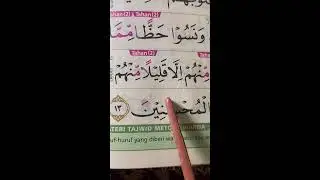 Tahan (2) Tahan (2)
وَنَسُوْا حَظًّا مِّمَّا
Tahan (2)
مِنْهُمْ اِلَّا قَلِيْلًا مِّنْهُمْ
الْمُحْسِنِيْنَ ١٣
ATERI TAJWID METO
uf-huruf yang diberi wa